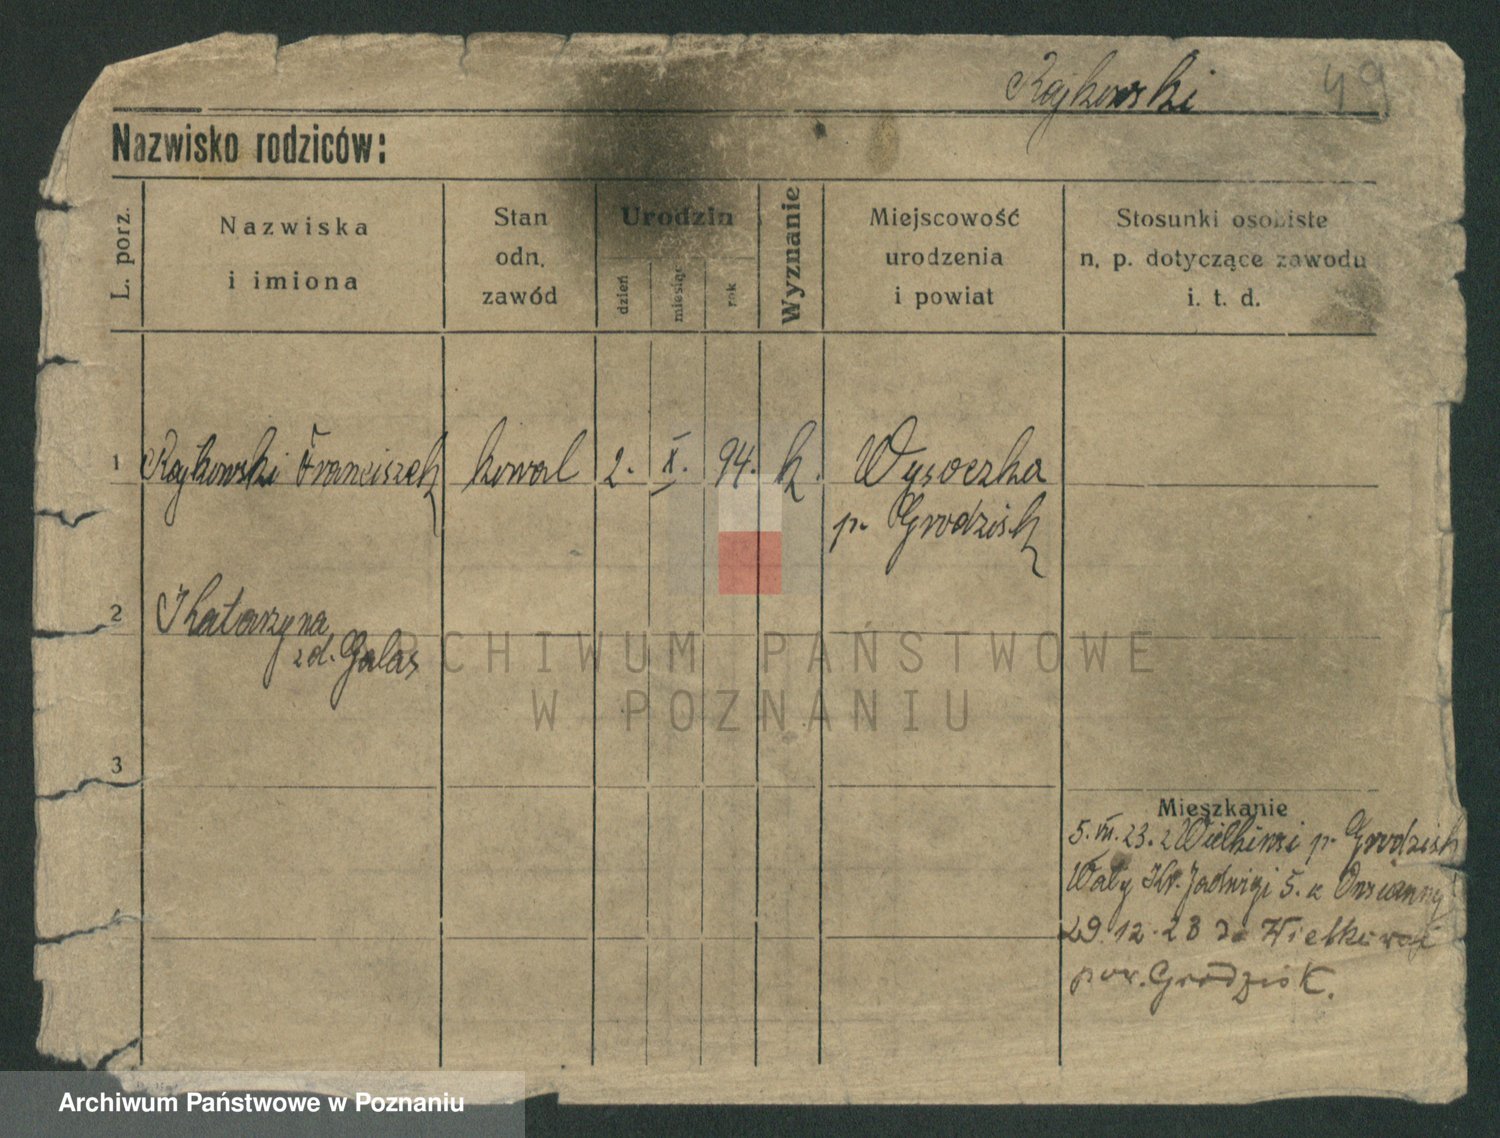 Rajkowski 49
Nazwisko rodziców:
L. porz.
Nazwiska
i imiona
Stan
odn.
zawód
Urodzin
dzień
miesiąc
rok
Wyznanie
Miejscowość
urodzenia
i powiat
Stosunki osobiste
n. p. dotyczące zawodu
i. t. d.
1 Rajkowski Franciszek kowal 2. X. 94. k. Wysoczka
p. Grodzisk
2 Katarzyna
zd. Galas
ARCHIWUM PAŃSTWOWE
W POZNANIU
3
Mieszkanie
5. VII. 23. z p. Grodzisk
Wały Kr. Jadwigi 5.
29.12.28 do
pow. Grodzisk.
Archiwum Państwowe w Poznaniu